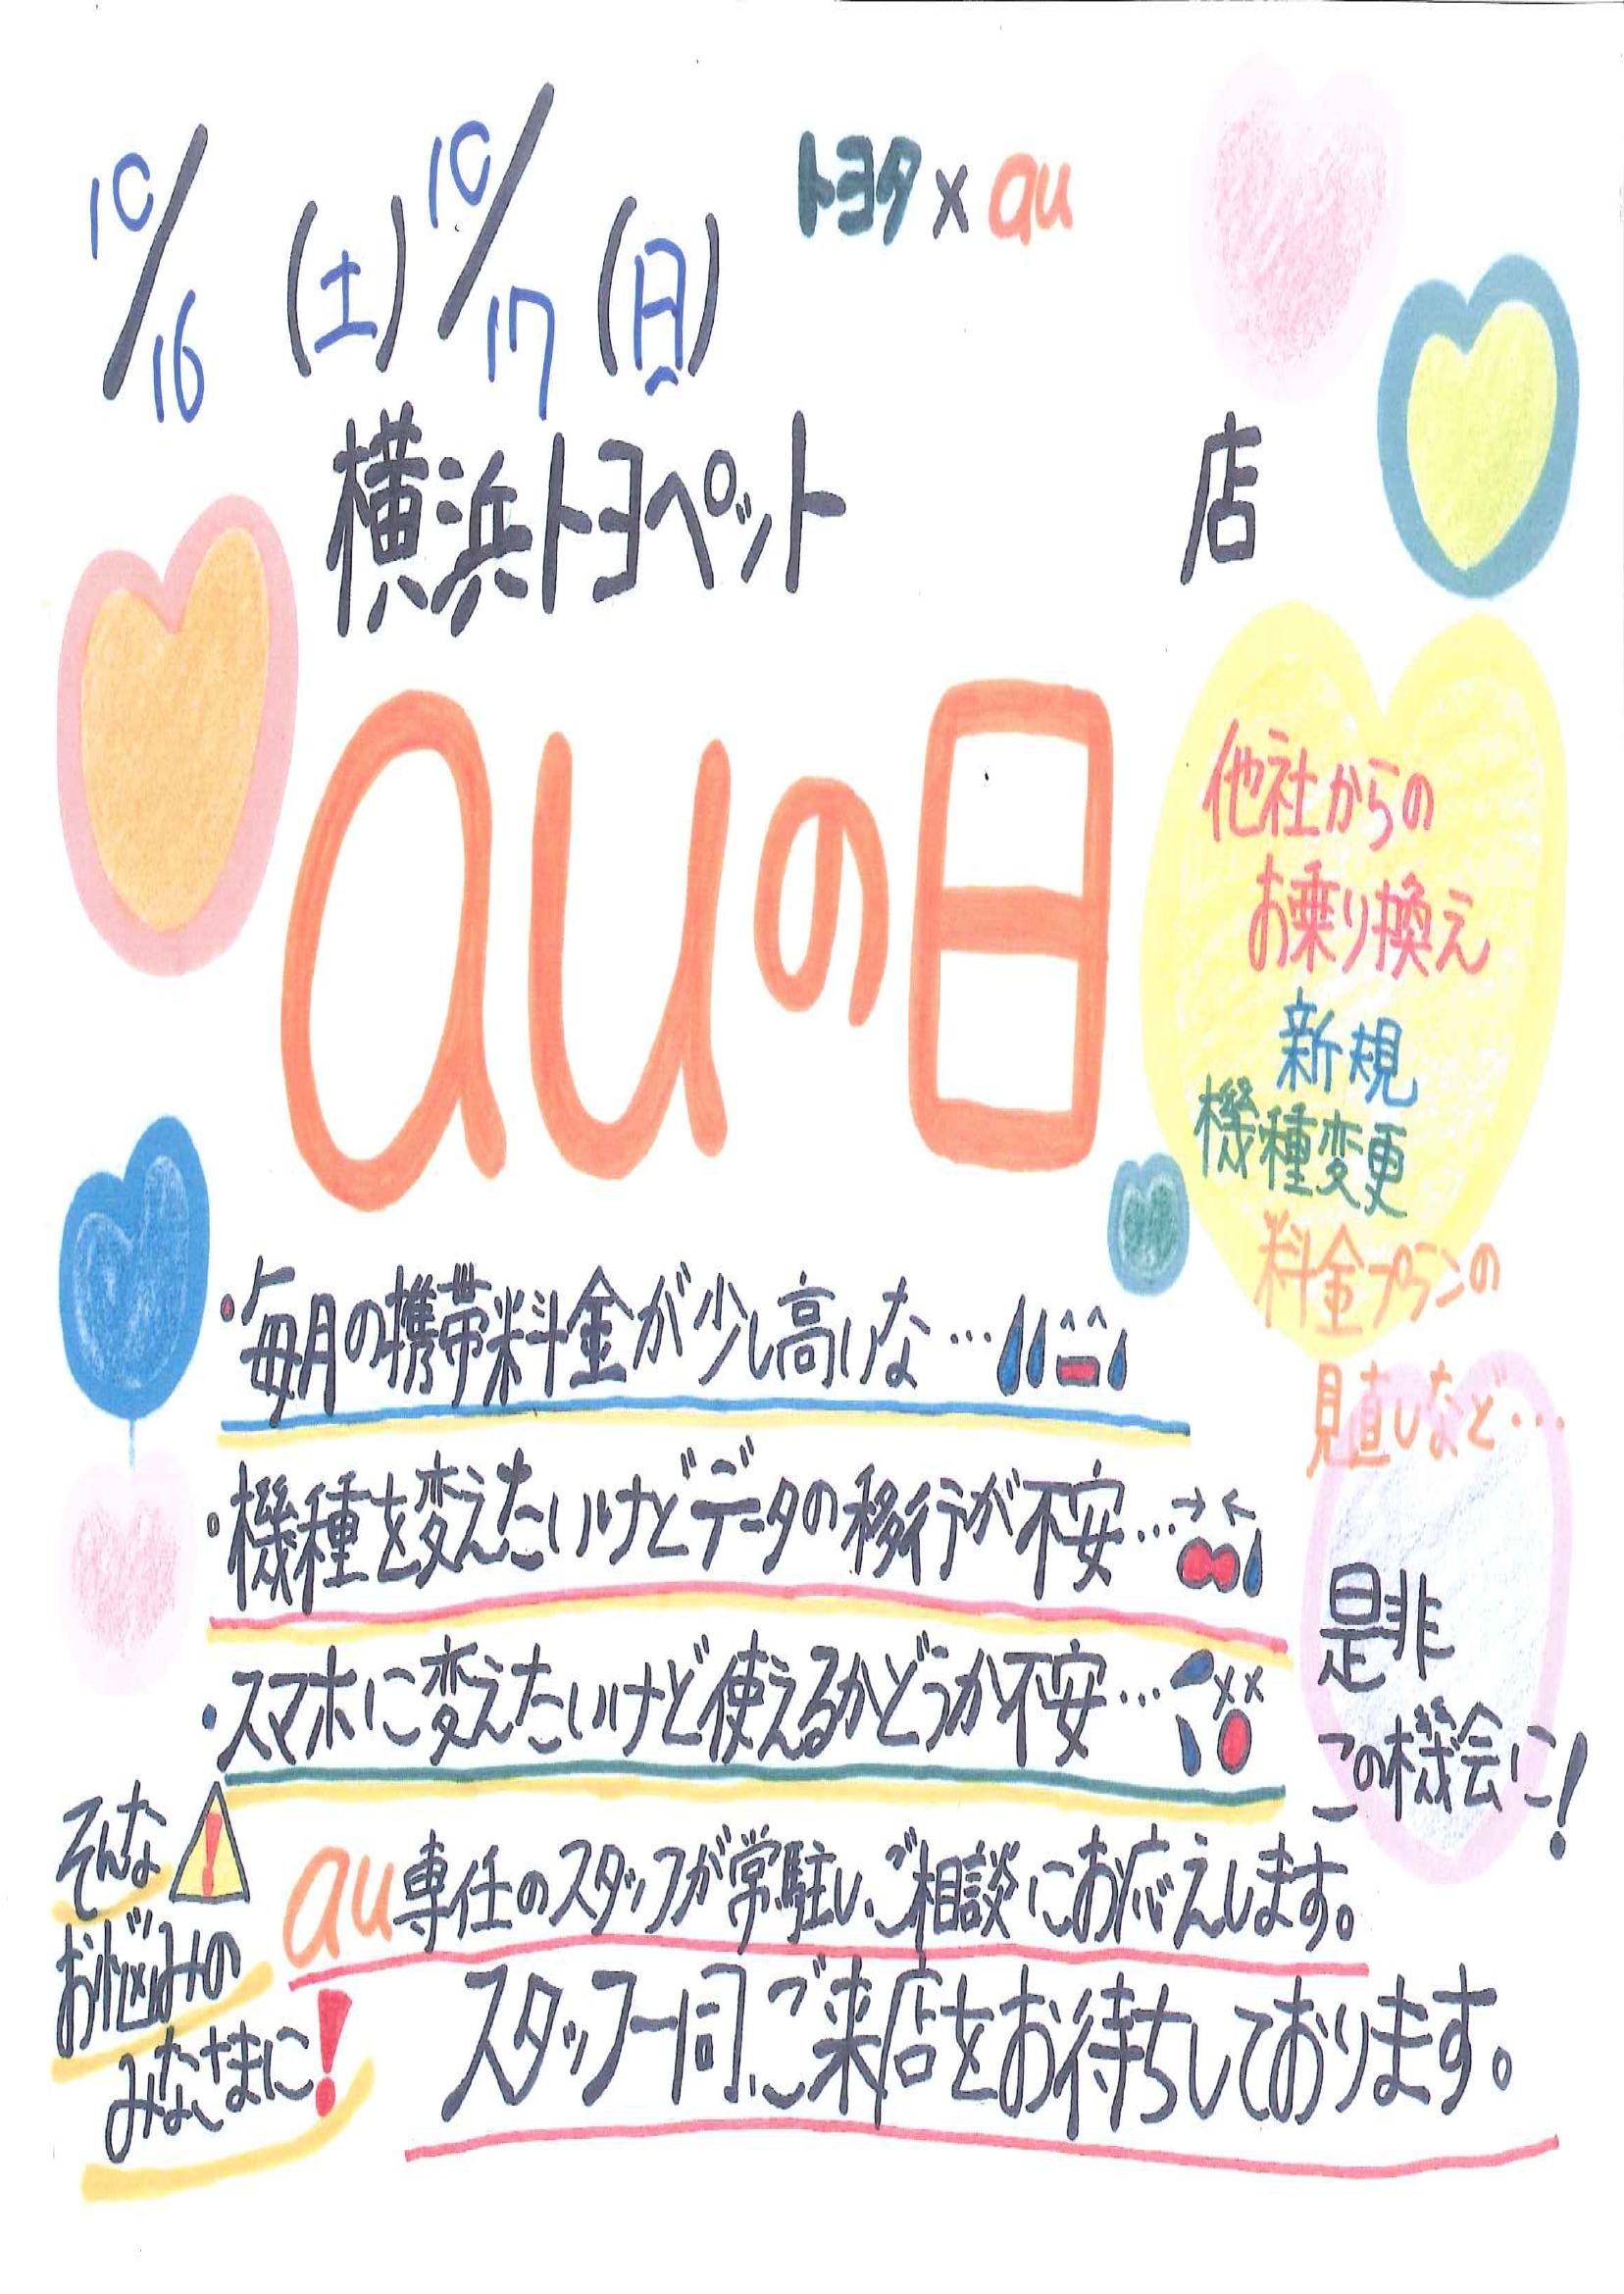 10/16(土)10/17(日)
トヨタ×au
横浜トヨペット 店
auの日
他社からの
お乗り換え
新規
機種変更
料金プランの
見直しなど…
・毎月の携帯料金が少し高いな…
・機種を変えたいけどデータの移行が不安…
・スマホに変えたいけど使えるかどうか不安…
是非
この機会に!
そんな
お悩みの
みなさまに!
au専任のスタッフが常駐し、ご相談にお応えします。
スタッフ一同、ご来店をお待ちしております。